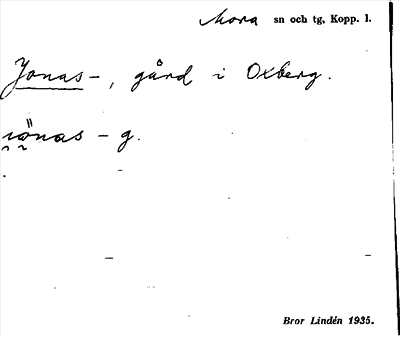 Mora sn och tg, Kopp. l.
Jonas-, gård i Oxberg.
- g.
Bror Lindén 1935.